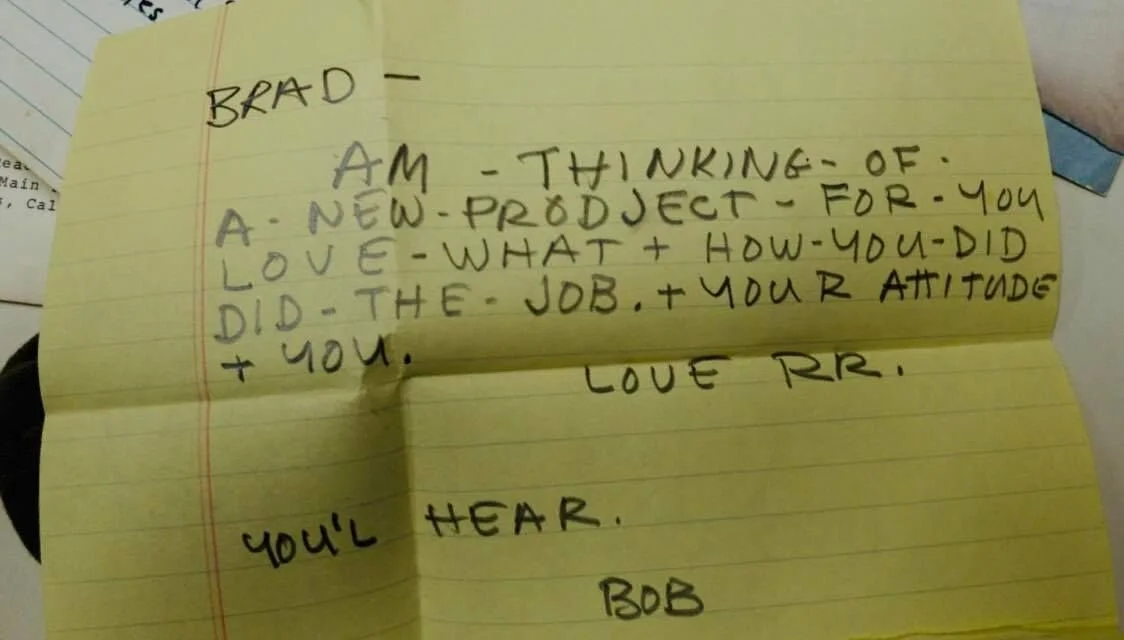 BRAD -
AM - THINKING - OF -
A - NEW - PRODJECT - FOR - YOU
LOVE - WHAT + HOW - YOU - DID
DID - THE - JOB. + YOUR ATTITUDE
+ YOU.
LOVE RR.
YOU'L HEAR.
BOB
Main
, Cal